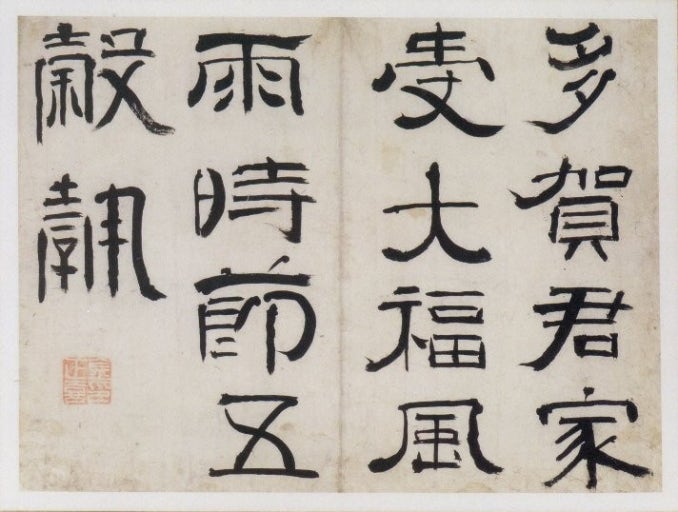 多賀君家
受大福風
雨時節五
穀執